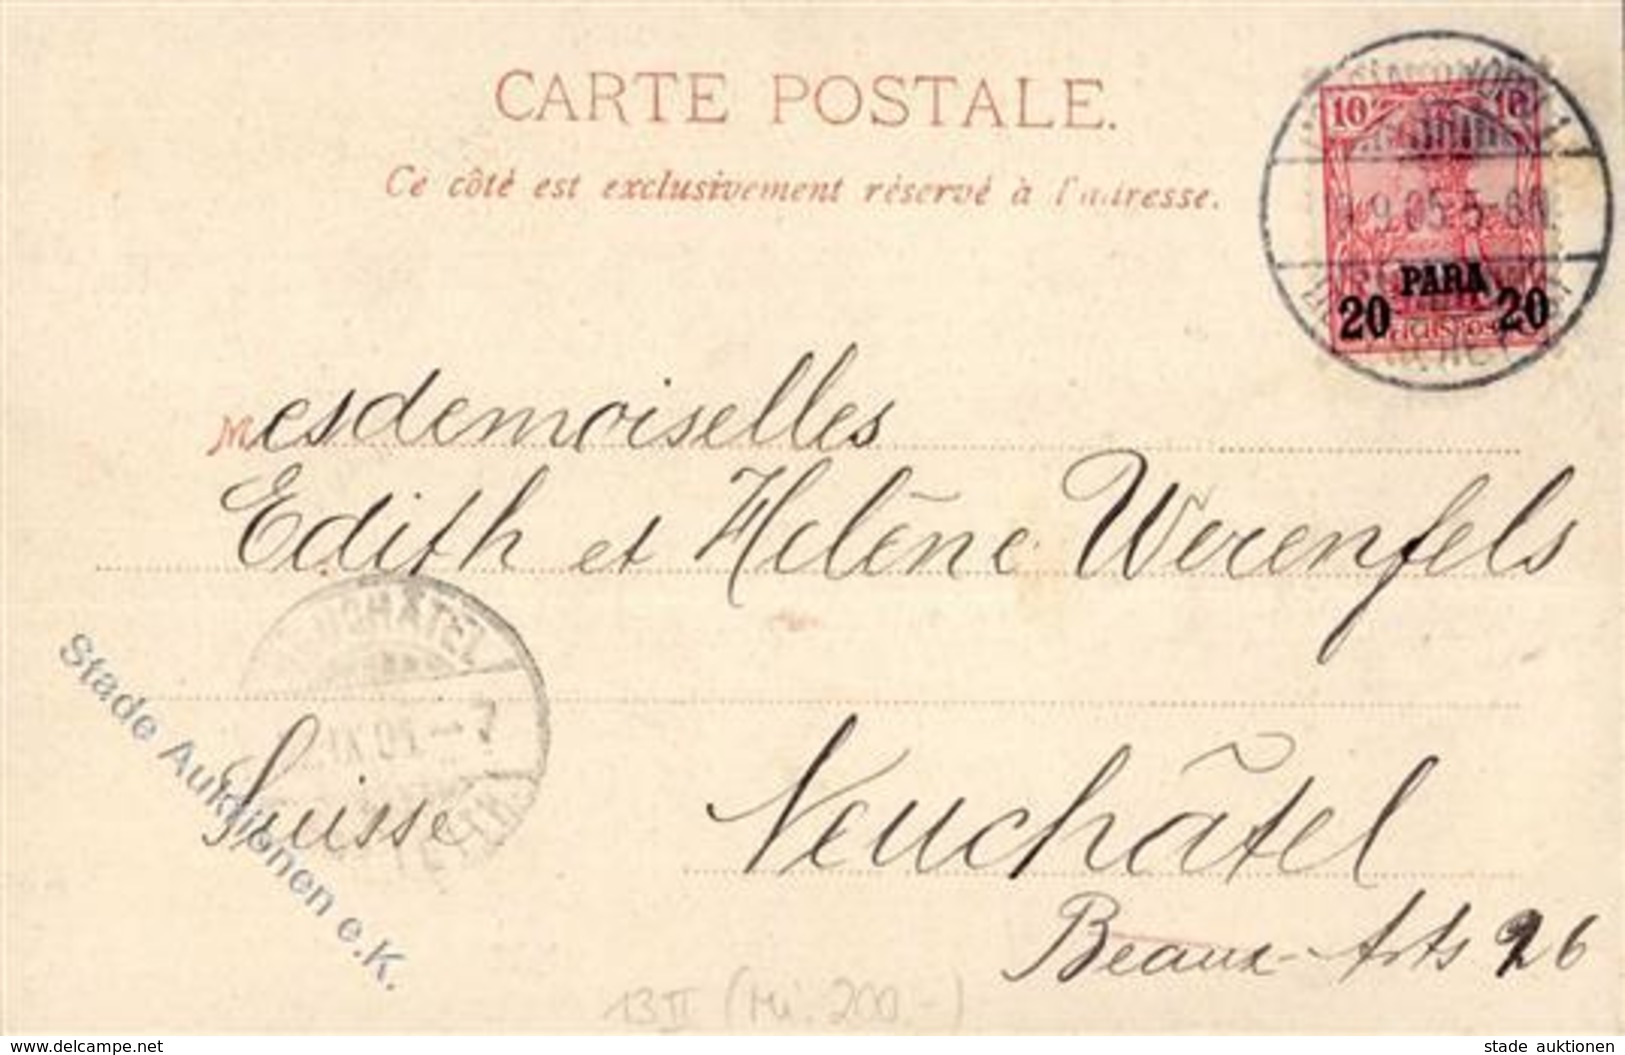 CARTE POSTALE.
Ce côté est exclusivement réservé à l'adresse.
10 10
9.05.5-6N.
PARA
20 20
REICHSPOST
Mesdemoiselles
Edith et Helēne Werenfels
NEUCHÂTEL
IX 05 - 7
LETTR.
Suisse
Neuchâtel
Beaux-Arts 26
Stade Auktionen e.K.
13 II (Mi. 200.-)
www.delcampe.net
stade auktionen